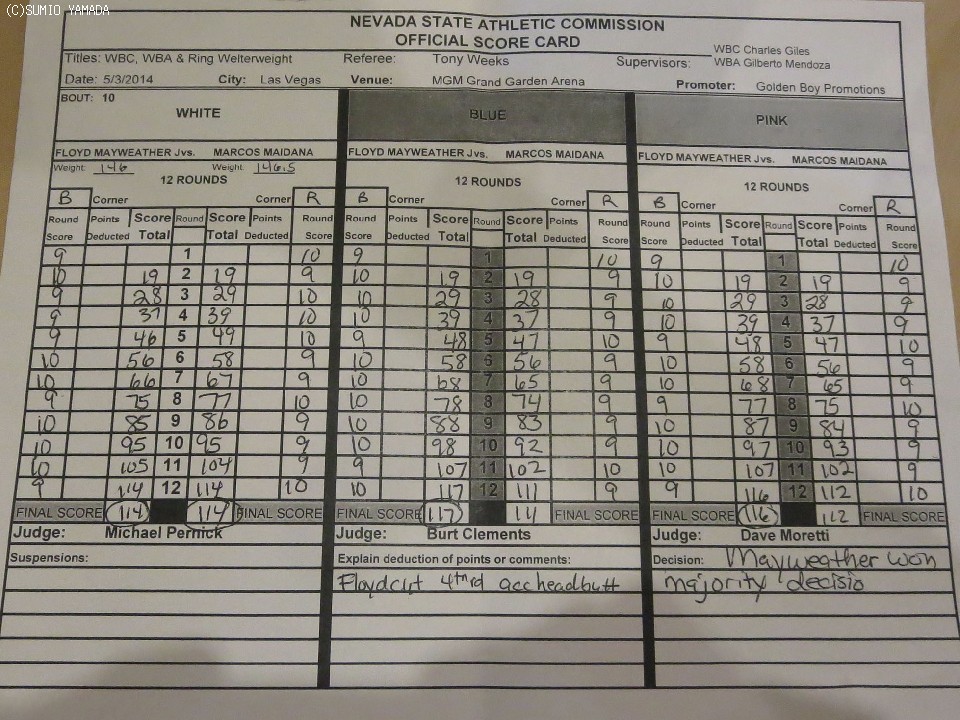 (C)SUMIO YAMADA
NEVADA STATE ATHLETIC COMMISSION
OFFICIAL SCORE CARD
Titles: WBC, WBA & Ring Welterweight Referee: Tony Weeks Supervisors: WBC Charles Giles
WBA Gilberto Mendoza
Date: 5/3/2014 City: Las Vegas Venue: MGM Grand Garden Arena Promoter: Golden Boy Promotions
BOUT: 10
WHITE BLUE PINK
FLOYD MAYWEATHER Jvs. MARCOS MAIDANA FLOYD MAYWEATHER Jvs. MARCOS MAIDANA FLOYD MAYWEATHER Jvs. MARCOS MAIDANA
Weight: 146 Weight: 146.5
12 ROUNDS 12 ROUNDS 12 ROUNDS
B Corner Corner R B Corner Corner R B Corner Corner R
Round Points Score Round Score Points Round Round Points Score Round Score Points Round Round Points Score Round Score Points Round
Score Deducted Total Total Deducted Score Score Deducted Total Total Deducted Score Score Deducted Total Total Deducted Score
9 1 10 9 1 10 9 1 10
10 19 2 19 9 10 19 2 19 9 10 19 2 19 9
9 28 3 29 10 10 29 3 28 9 10 29 3 28 9
9 37 4 39 10 10 39 4 37 9 10 39 4 37 9
9 46 5 49 10 9 48 5 47 10 9 48 5 47 10
10 56 6 58 9 10 58 6 56 9 10 58 6 56 9
10 66 7 67 9 10 68 7 65 9 10 68 7 65 9
9 75 8 77 10 10 78 8 74 9 9 77 8 75 10
10 85 9 86 9 10 88 9 83 9 10 87 9 84 9
10 95 10 95 9 10 98 10 92 9 10 97 10 93 9
10 105 11 104 9 9 107 11 102 10 10 107 11 102 9
9 114 12 114 10 10 117 12 111 9 9 116 12 112 10
FINAL SCORE 114 114 FINAL SCORE FINAL SCORE 117 FINAL SCORE FINAL SCORE 116 112 FINAL SCORE
Judge: Michael Pernick Judge: Burt Clements Judge: Dave Moretti
Suspensions: Explain deduction of points or comments: Decision: Mayweather won
Floyd cut 4th rd acc headbutt majority decisio